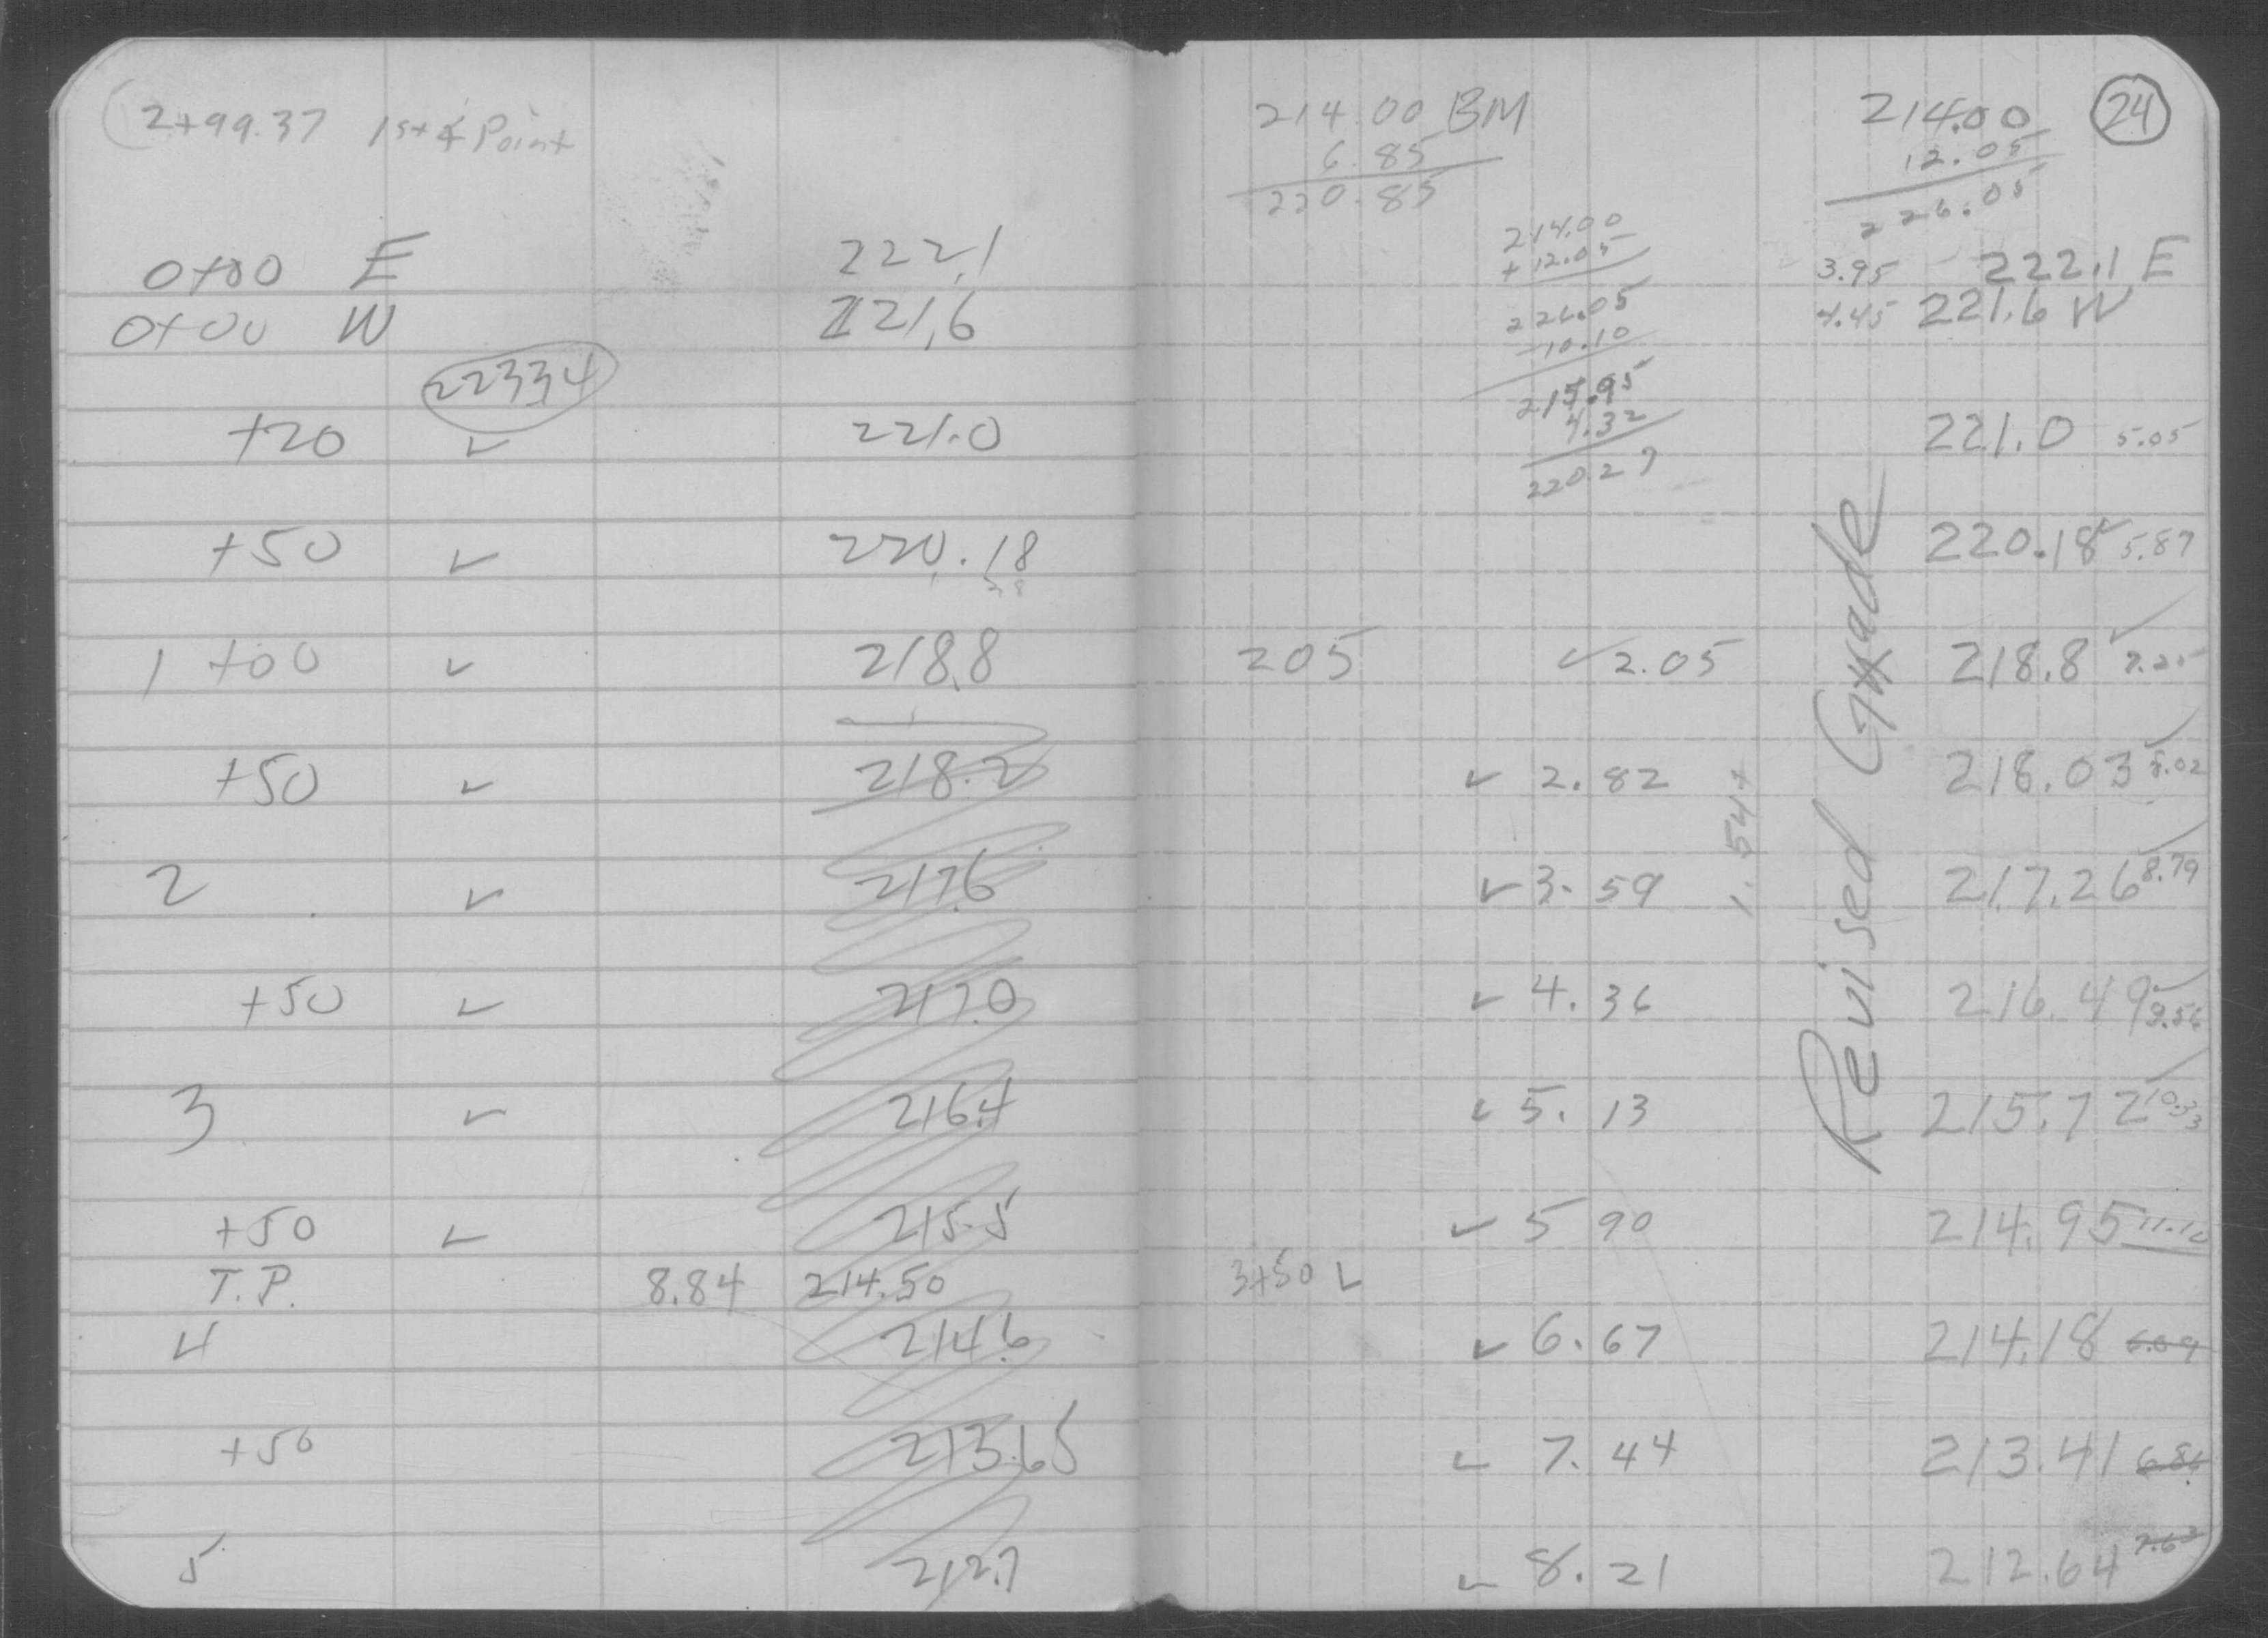 2+99.37 1st ∡ Point
0+00 E 222.1
0+00 W 221.6
22334
+20 ✓ 221.0
+50 ✓ 220.18
1+00 ✓ 218.8
+50 ✓ 218.2
2 ✓ 217.6
+50 ✓ 217.0
3 ✓ 216.4
+50 ✓ 215.5
T.P. 8.84 214.50
4 214.6
+50 213.65
5 212.7
24
214.00 BM
6.85
220.85
214.00
+12.05
226.05
-10.10
215.95
4.32
220.27
214.00
12.05
226.05
3.95 222.1 E
4.45 221.6 W
221.0 5.05
220.18 ✓ 5.87
205 ✓ 2.05 218.8 ✓ 7.25
✓ 2.82 218.03 ✓ 8.02
✓ 3.59 217.26 ✓ 8.79
✓ 4.36 216.49 ✓ 9.56
✓ 5.13 215.72 ✓ 10.33
✓ 5 90 214.95 11.10
3+50 ✓
✓ 6.67 214.18 6.09
✓ 7.44 213.41 6.86
✓ 8.21 212.64 7.63
1.54+
Revised Grade